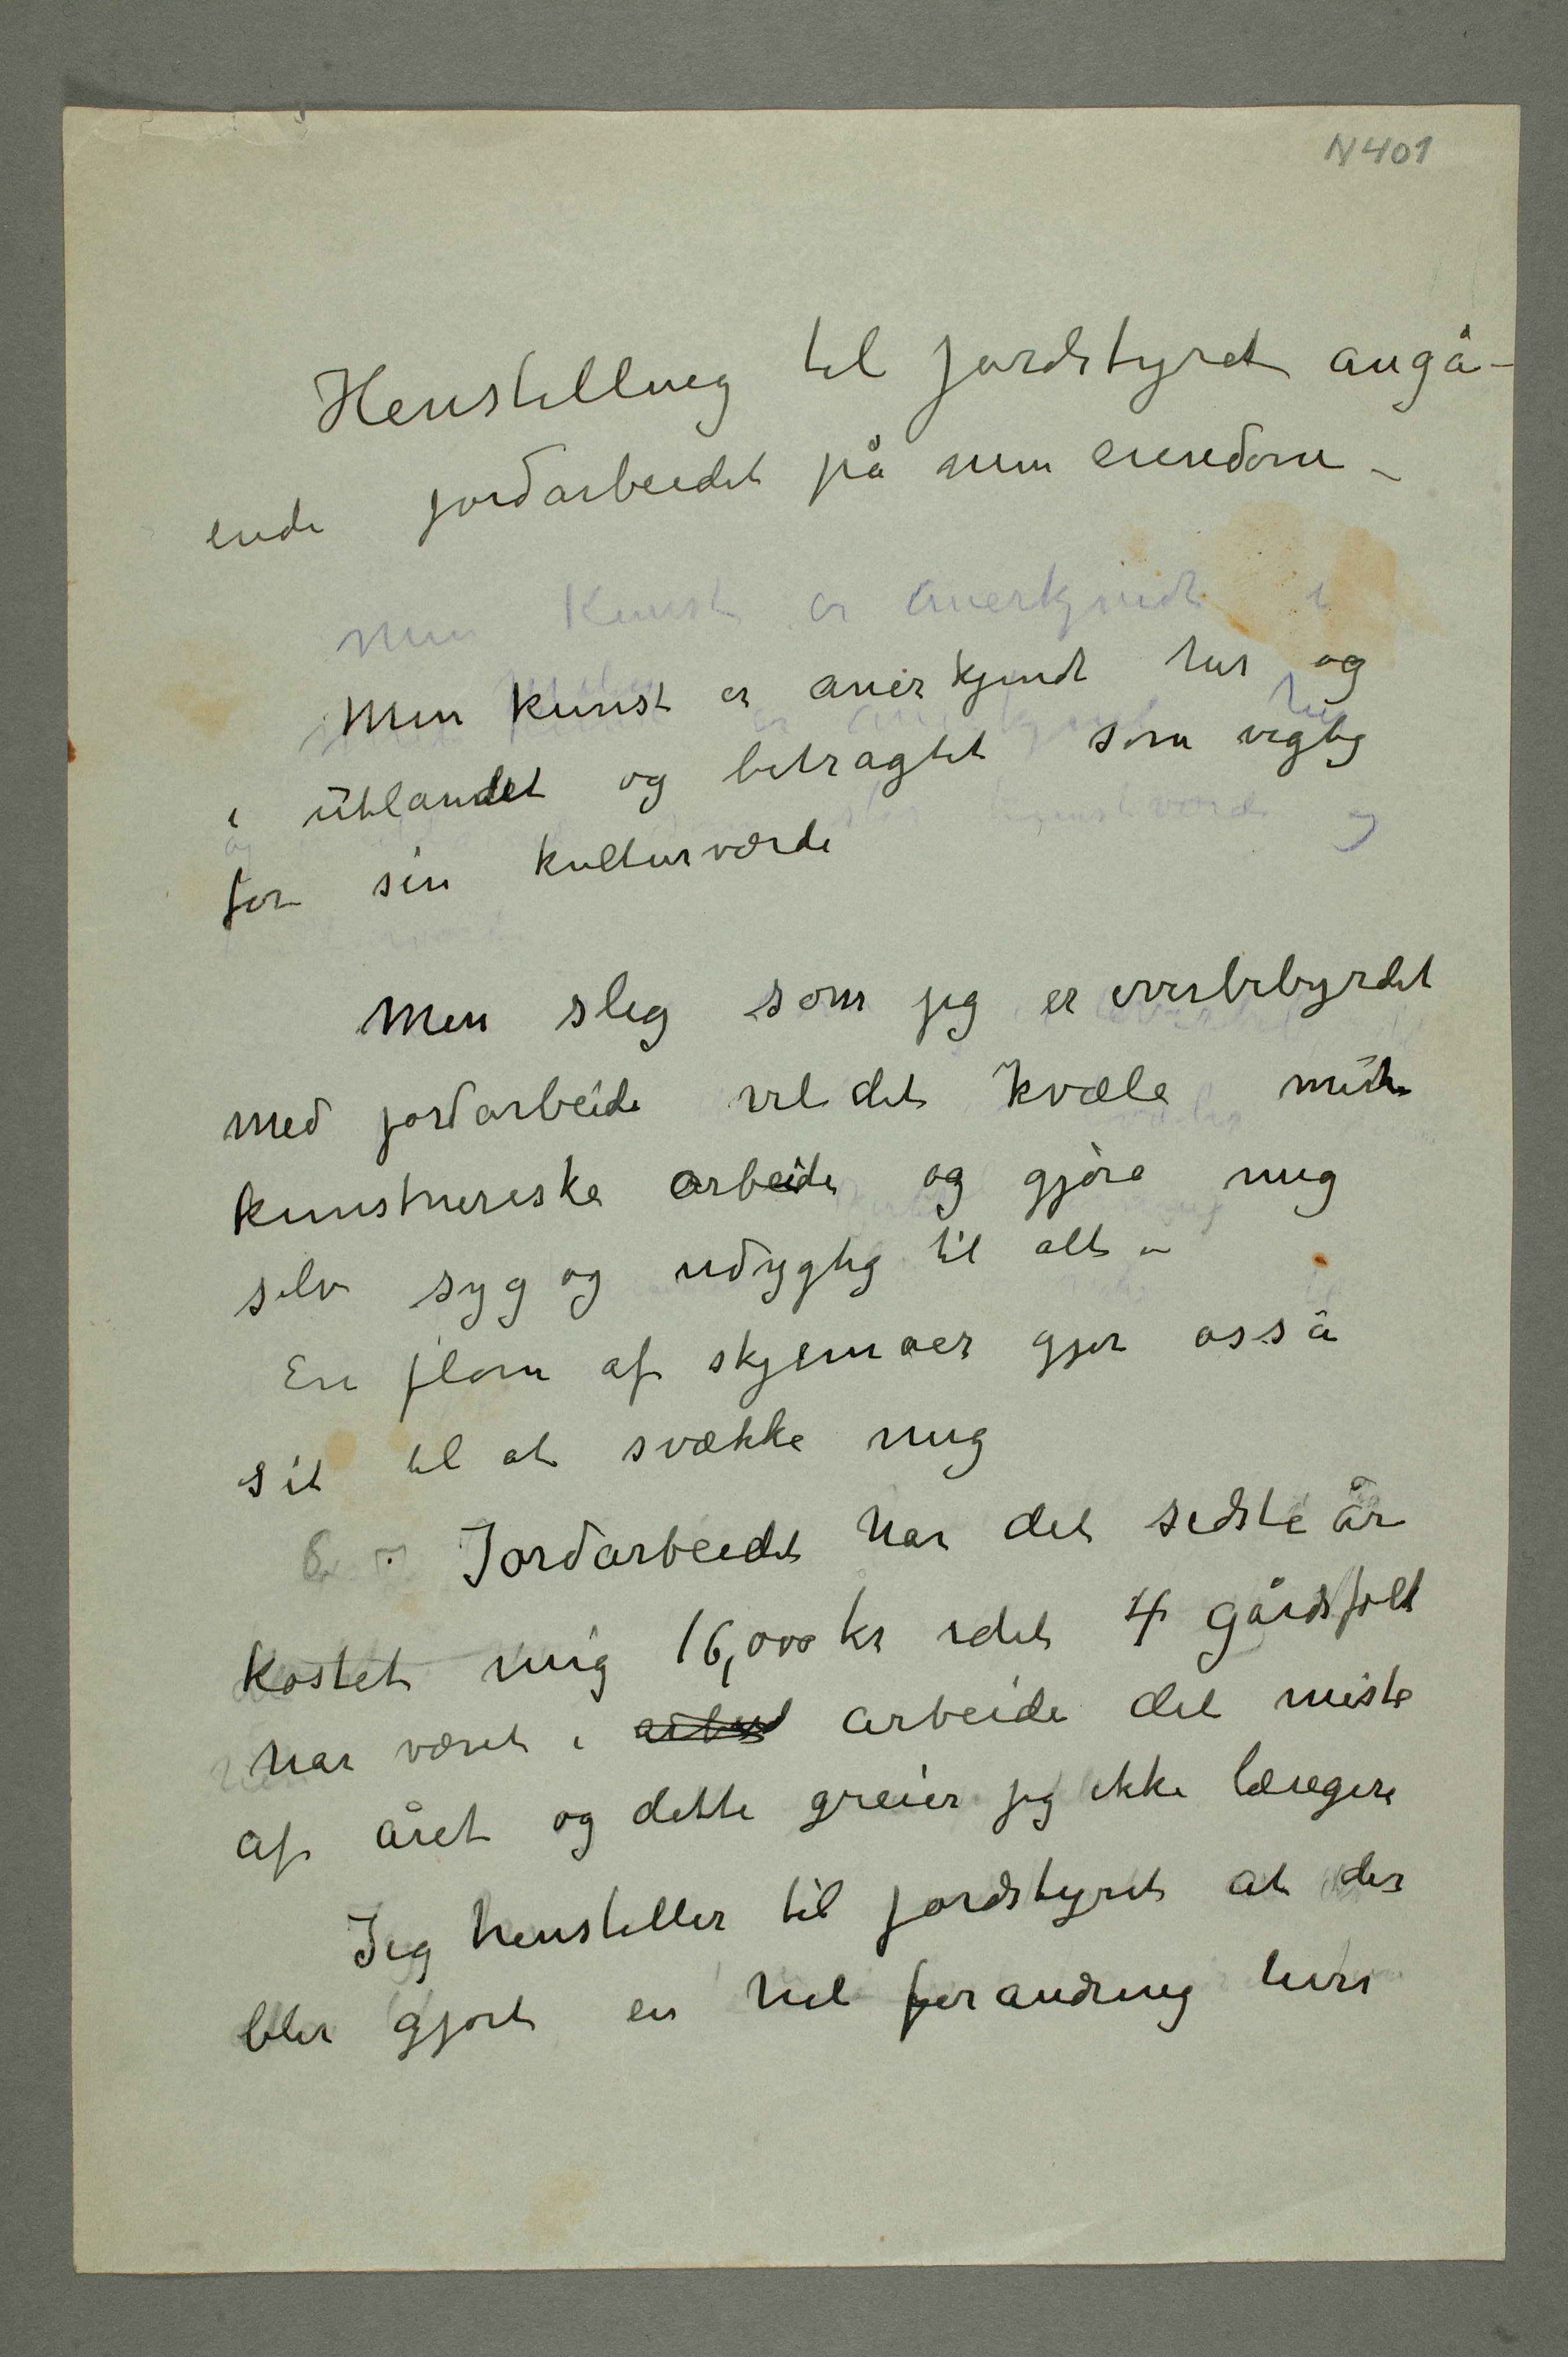 N 401
Henstilling til jordstyret angå-
ende jordarbeidet på min eiendom –
Min Kunst er anerkjendt i
Min kunst er anerkjendt her og
i utlandet og betragtet som vigtig
for sin kulturværdi
Men slig som jeg er overbebyrdet
med jordarbeide vil det kvæle mit
kunstneriske arbeide og gjøre mig
selv syg og udygtig til alt –
En flom af skjemaer gjør osså
sit til at svække mig
Jordarbeidet har det sidste år
kostet mig 16,000 kr idet 4 gårdsfolk
har været i arbeide det meste
af året og dette greier jeg ikke længere
Jeg henstiller til jordstyret at der
blir gjort en hel forandring heri